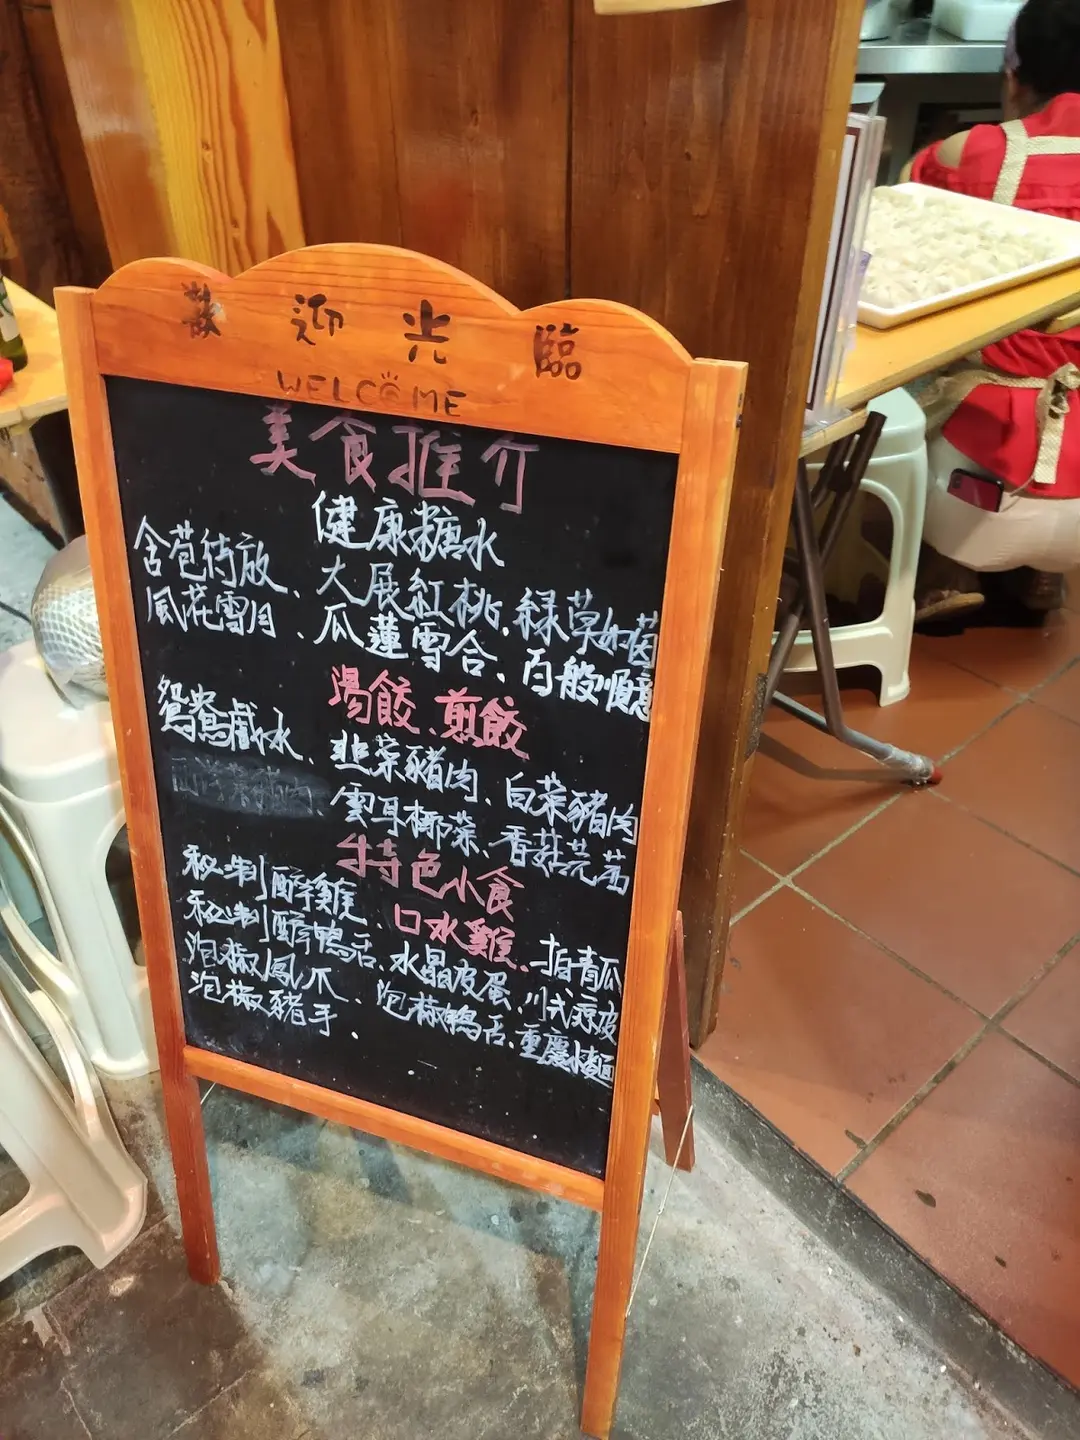 歡迎光臨
WELCOME
美食推介
健康糖水
含苞待放、大展紅桃、緑草如茵
風花雪月、瓜蓮雪合、百般順意
湯餃、煎餃
鴛鴦戲水、韭菜豬肉、白菜豬肉
雲耳椰菜、香菇芫茜
特色小食
秘制醉雞、口水雞、拍青瓜
秘制醉鴨舌、水晶皮蛋、川式涼皮
泡椒鳳爪、泡椒鴨舌、重慶小麵
泡椒豬手